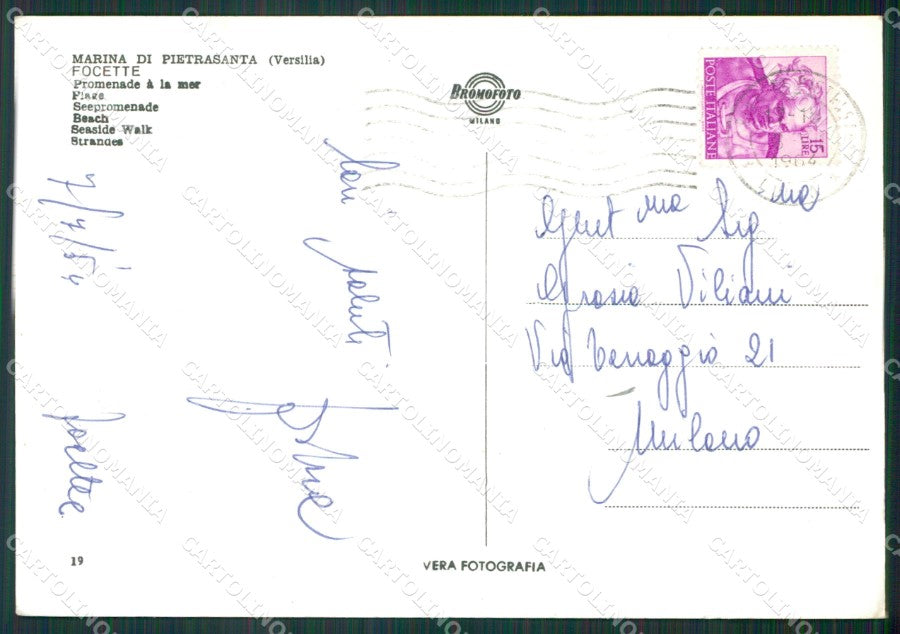 MARINA DI PIETRASANTA (Versilia)
FOCETTE
Promenade à la mer
Plage
Seepromenade
Beach
Seaside Walk
Strandes
BROMOFOTO
MILANO
POSTE ITALIANE
15 LIRE
Cari
saluti
7/7/64
Focette
Gent ma Sig ina
Grazia Viliani
Via Vanaggio 21
Milano
19
VERA FOTOGRAFIA
CARTOLINOMANIA